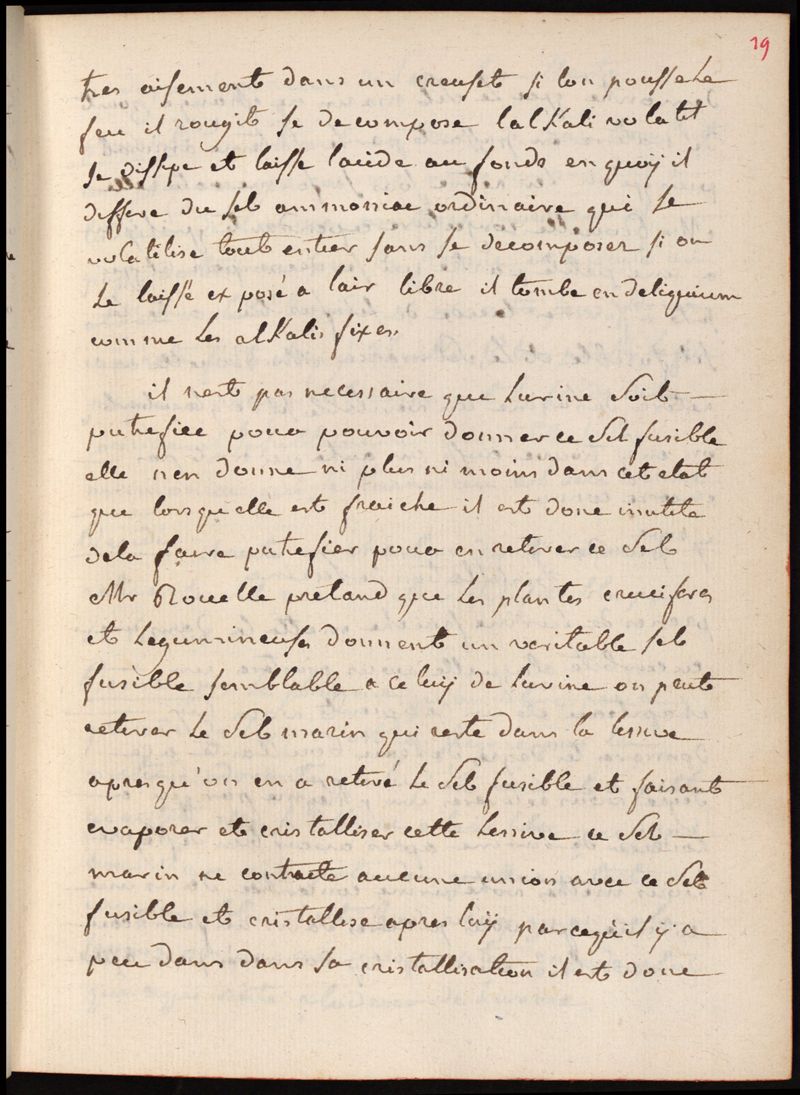 19
tres aisement dans un creuset si lon pousse le
feu il rougit se decompose lalkali volatil
se dissipe et laisse lacide au fonds en quoÿ il
differe du sel ammoniac ordinaire qui se
volatilise tout entier sans se decomposer si on
le laisse exposé a lair libre il tombe en deliquium
comme les alkalis fixes
il nest pas necessaire que lurine soit
putrefiée pour pouvoir donner ce sel fusible
elle nen donne ni plus ni moins dans cet etat
que lorsquelle est fraiche il est donc inutile
dela faire putrefier pour en retirer ce sel
Mr Rouelle pretand que les plantes cruciferes
et legumineuses donnent un veritable sel
fusible semblable a celuÿ de lurine on peut
retirer le sel marin qui reste dans la lessive
apres qu'on en a retiré le sel fusible et faisant
evaporer et cristalliser cette lessive ce sel
marin ne contracte aucune union avec ce sel
fusible et cristallise apres luÿ parcequil ÿ a
peu dans dans sa cristallisation il est donc